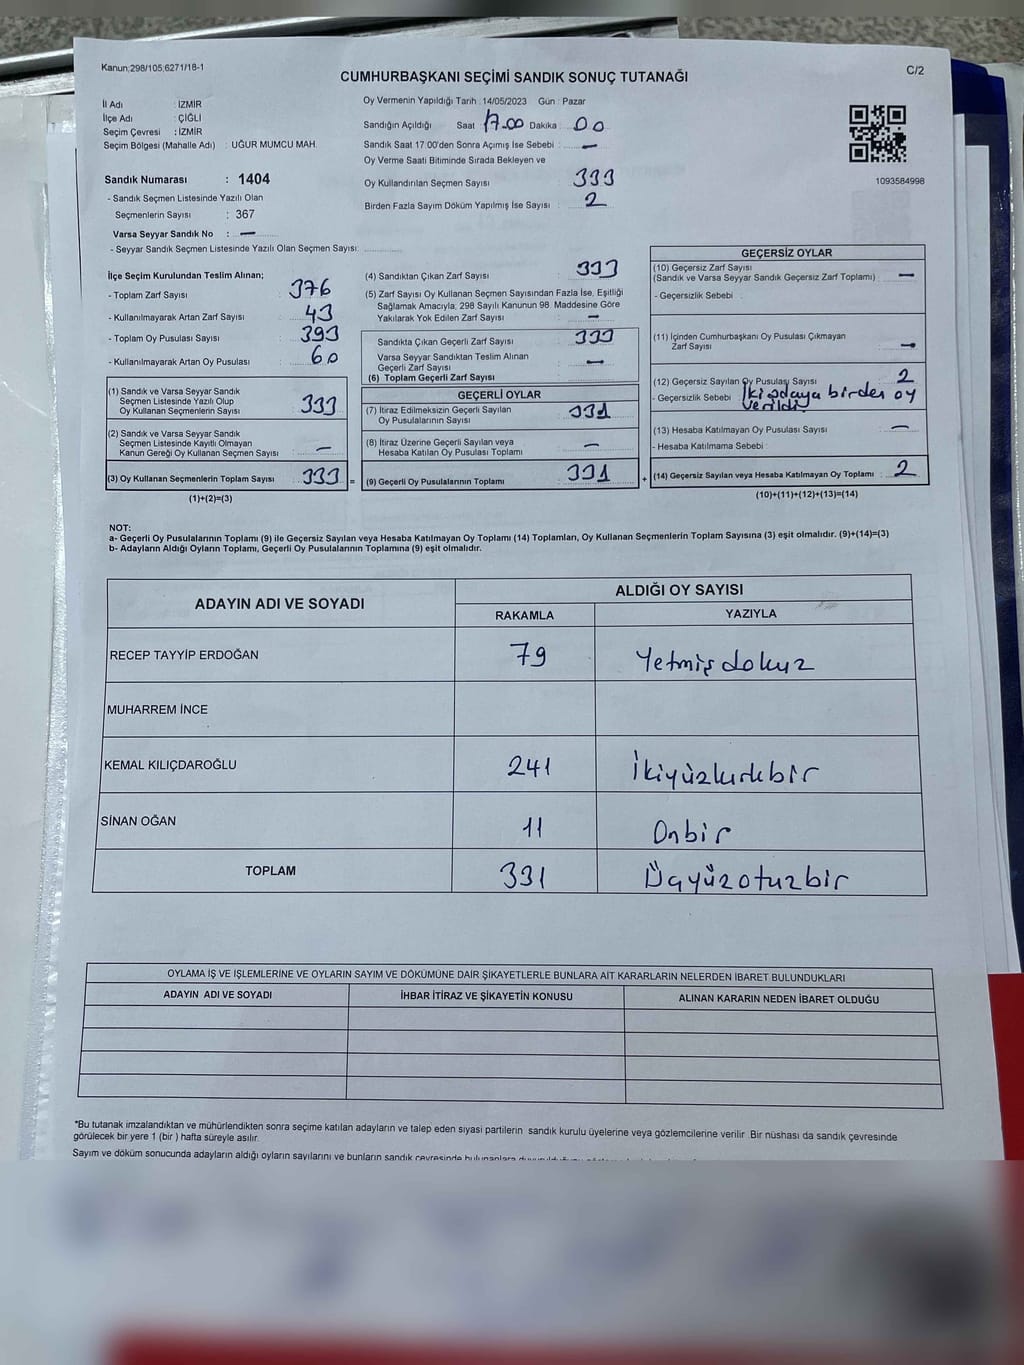 Kanun;298/105;6271/18-1
C/2
CUMHURBAŞKANI SEÇİMİ SANDIK SONUÇ TUTANAĞI
İl Adı : İZMİR
İlçe Adı : ÇİĞLİ
Seçim Çevresi : İZMİR
Seçim Bölgesi (Mahalle Adı) : UĞUR MUMCU MAH.
Sandık Numarası : 1404
- Sandık Seçmen Listesinde Yazılı Olan
Seçmenlerin Sayısı : 367
Varsa Seyyar Sandık No : —
- Seyyar Sandık Seçmen Listesinde Yazılı Olan Seçmen Sayısı:
Oy Vermenin Yapıldığı Tarih : 14/05/2023 Gün : Pazar
Sandığın Açıldığı Saat 17.00 Dakika : 00
Sandık Saat 17:00'den Sonra Açımış İse Sebebi : —
Oy Verme Saati Bitiminde Sırada Bekleyen ve
Oy Kullandırılan Seçmen Sayısı : 333
Birden Fazla Sayım Döküm Yapılmış İse Sayısı : 2
1093584998
İlçe Seçim Kurulundan Teslim Alınan;
- Toplam Zarf Sayısı : 376
- Kullanılmayarak Artan Zarf Sayısı : 43
- Toplam Oy Pusulası Sayısı : 393
- Kullanılmayarak Artan Oy Pusulası : 60
(1) Sandık ve Varsa Seyyar Sandık
Seçmen Listesinde Yazılı Olup
Oy Kullanan Seçmenlerin Sayısı : 333
(2) Sandık ve Varsa Seyyar Sandık
Seçmen Listesinde Kayıtlı Olmayan
Kanun Gereği Oy Kullanan Seçmen Sayısı : —
(3) Oy Kullanan Seçmenlerin Toplam Sayısı : 333 =
(1)+(2)=(3)
(4) Sandıktan Çıkan Zarf Sayısı : 333
(5) Zarf Sayısı Oy Kullanan Seçmen Sayısından Fazla İse, Eşitliği
Sağlamak Amacıyla; 298 Sayılı Kanunun 98. Maddesine Göre
Yakılarak Yok Edilen Zarf Sayısı : —
Sandıkta Çıkan Geçerli Zarf Sayısı : 333
Varsa Seyyar Sandıktan Teslim Alınan
Geçerli Zarf Sayısı : —
(6) Toplam Geçerli Zarf Sayısı :
GEÇERLİ OYLAR
(7) İtiraz Edilmeksizin Geçerli Sayılan
Oy Pusulalarının Sayısı : 331
(8) İtiraz Üzerine Geçerli Sayılan veya
Hesaba Katılan Oy Pusulası Toplamı : —
(9) Geçerli Oy Pusulalarının Toplamı : 331 +
GEÇERSİZ OYLAR
(10) Geçersiz Zarf Sayısı
(Sandık ve Varsa Seyyar Sandık Geçersiz Zarf Toplamı) : —
- Geçersizlik Sebebi :
(11) İçinden Cumhurbaşkanı Oy Pusulası Çıkmayan
Zarf Sayısı : —
(12) Geçersiz Sayılan Oy Pusulası Sayısı : 2
- Geçersizlik Sebebi : İki adaya birden oy
verildi
(13) Hesaba Katılmayan Oy Pusulası Sayısı : —
- Hesaba Katılmama Sebebi :
(14) Geçersiz Sayılan veya Hesaba Katılmayan Oy Toplamı : 2
(10)+(11)+(12)+(13)=(14)
NOT:
a- Geçerli Oy Pusulalarının Toplamı (9) ile Geçersiz Sayılan veya Hesaba Katılmayan Oy Toplamı (14) Toplamları, Oy Kullanan Seçmenlerin Toplam Sayısına (3) eşit olmalıdır. (9)+(14)=(3)
b- Adayların Aldığı Oyların Toplamı, Geçerli Oy Pusulalarının Toplamına (9) eşit olmalıdır.
ADAYIN ADI VE SOYADI
ALDIĞI OY SAYISI
RAKAMLA YAZIYLA
RECEP TAYYİP ERDOĞAN 79 Yetmiş dokuz
MUHARREM İNCE
KEMAL KILIÇDAROĞLU 241 İkiyüzkırkbir
SİNAN OĞAN 11 Onbir
TOPLAM 331 Üçyüzotuzbir
OYLAMA İŞ VE İŞLEMLERİNE VE OYLARIN SAYIM VE DÖKÜMÜNE DAİR ŞİKAYETLERLE BUNLARA AİT KARARLARIN NELERDEN İBARET BULUNDUKLARI
ADAYIN ADI VE SOYADI İHBAR İTİRAZ VE ŞİKAYETİN KONUSU ALINAN KARARIN NEDEN İBARET OLDUĞU
*Bu tutanak imzalandıktan ve mühürlendikten sonra seçime katılan adayların ve talep eden siyasi partilerin sandık kurulu üyelerine veya gözlemcilerine verilir .Bir nüshası da sandık çevresinde
görülecek bir yere 1 (bir ) hafta süreyle asılır.
Sayım ve döküm sonucunda adayların aldığı oyların sayılarını ve bunların sandık çevresinde bulunanlara